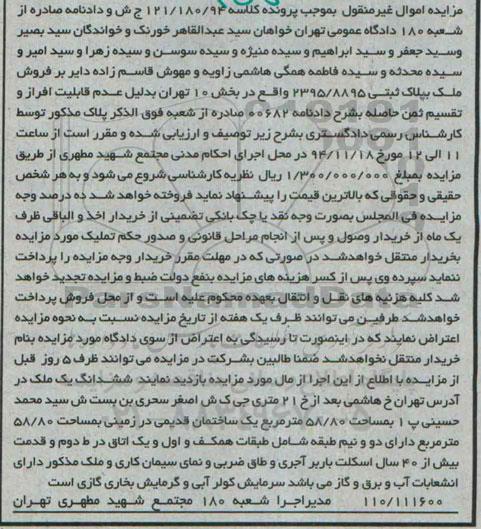 مزایده اموال غیرمنقول بموجب پرونده کلاسه ۱۲۱/۱۸۰/۹۴ ج ش و دادنامه صادره از
شعبه ۱۸۰ دادگاه عمومی تهران خواهان سید عبدالقاهر خورنک و خواندگان سید بصیر
وسید جعفر و سید ابراهیم و سیده منیژه و سیده سوسن و سیده زهرا و سید امیر و
سیده محدثه و سیده فاطمه همگی هاشمی زاویه و مهوش قاسم زاده دایر بر فروش
ملک بپلاک ثبتی ۲۳۹۵/۸۸۹۵ واقع در بخش ۱۰ تهران بدلیل عدم قابلیت افراز و
تقسیم ثمن حاصله بشرح دادنامه ۰۰۶۸۲ صادره از شعبه فوق الذکر پلاک مذکور توسط
کارشناس رسمی دادگستری بشرح زیر توصیف و ارزیابی شده و مقرر است از ساعت
۱۱ الی ۱۲ مورخ ۹۴/۱۱/۱۸ در محل اجرای احکام مدنی مجتمع شهید مطهری از طریق
مزایده بمبلغ ۱/۳۰۰/۰۰۰/۰۰۰ ریال نظریه کارشناسی شروع می شود و به هر شخص
حقیقی و حقوقی که بالاترین قیمت را پیشنهاد نماید فروخته خواهد شد ده درصد وجه
مزایده فی المجلس بصورت وجه نقد یا چک بانکی تضمینی از خریدار اخذ و الباقی ظرف
یک ماه از خریدار وصول و پس از انجام مراحل قانونی و صدور حکم تملیک مورد مزایده
بخریدار منتقل خواهدشد در صورتی که در مهلت مقرر خریدار وجه مزایده را پرداخت
ننماید سپرده وی پس از کسر هزینه های مزایده بنفع دولت ضبط و مزایده تجدید خواهد
شد کلیه هزینه های نقل و انتقال بعهده محکوم علیه است و از محل فروش پرداخت
خواهدشد طرفین می توانند ظرف یک هفته از تاریخ مزایده نسبت به نحوه مزایده
اعتراض نمایند که در اینصورت تا رسیدگی به اعتراض از سوی دادگاه مورد مزایده بنام
خریدار منتقل نخواهدشد ضمنا طالبین بشرکت در مزایده می توانند ظرف ۵ روز قبل
از مزایده با اطلاع از این اجرا از مال مورد مزایده بازدید نمایند ششدانگ یک ملک در
آدرس تهران خ هاشمی بعد از خ ۲۱ متری جی ک ش اصغر سحری بن بست ش سید محمد
حسینی پ ۱ بمساحت ۵۸/۸۰ مترمربع یک ساختمان قدیمی در زمینی بمساحت ۵۸/۸۰
مترمربع دارای دو و نیم طبقه شامل طبقات همکف و اول و یک اتاق در ط دوم و قدمت
بیش از ۴۰ سال اسکلت باربر آجری و طاق ضربی و نمای سیمان کاری و ملک مذکور دارای
انشعابات آب و برق و گاز می باشد سرمایش کولر آبی و گرمایش بخاری گازی است
۱۱۰/۱۱۱۶۰۰ مدیراجرا شعبه ۱۸۰ مجتمع شهید مطهری تهران